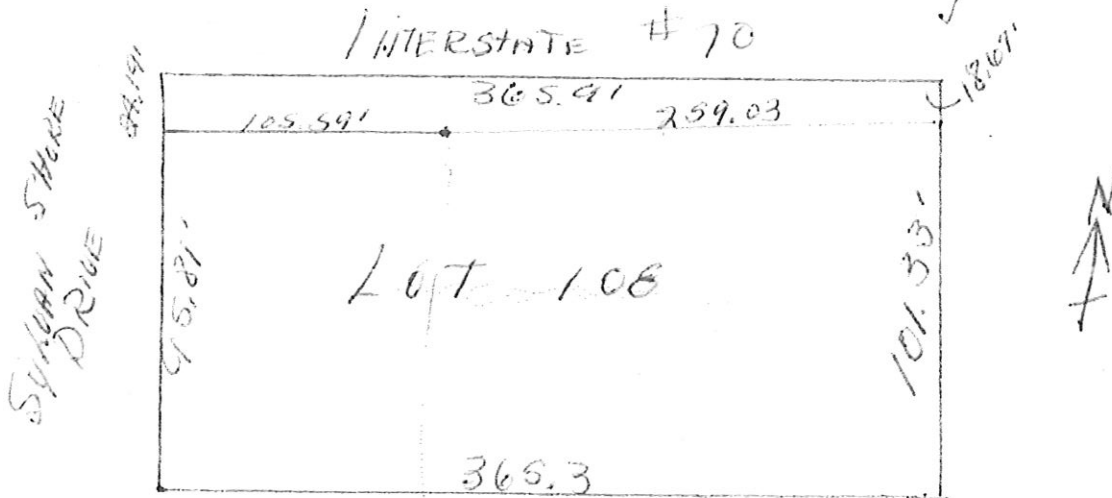 INTERSTATE # 70
18.67'
24.19'
365.91
105.59'
259.03
SYLVAN SHORE
DRIVE
95.81'
LOT 108
101.33'
N
365.3